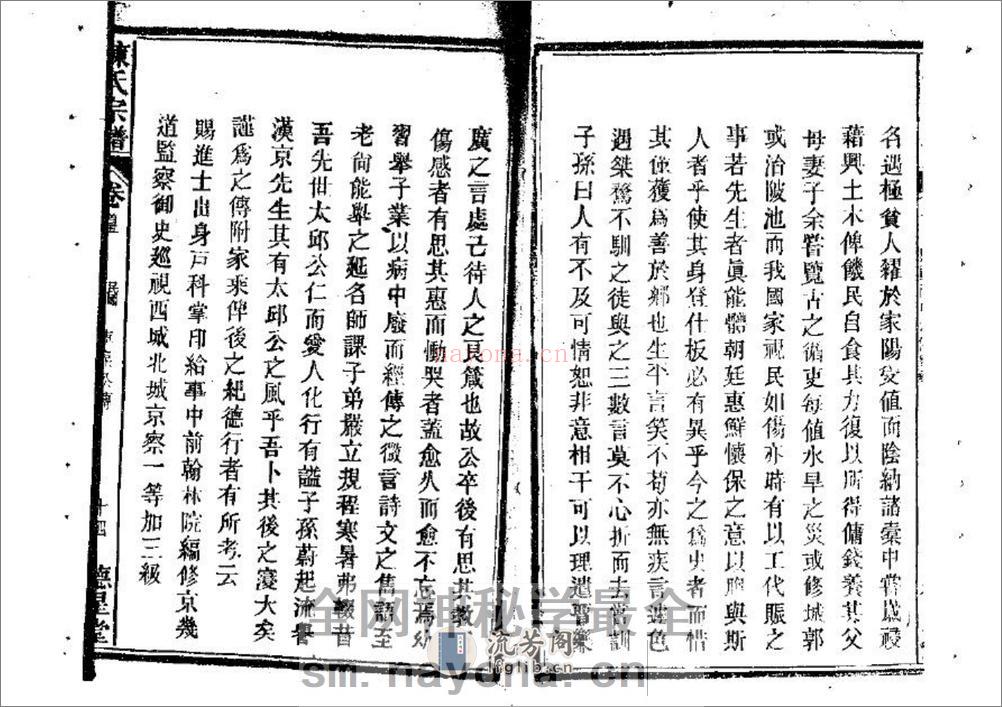 名遇極貧人糴於家陽受值而陰納諸橐中嘗歲祲
藉興土木俾饑民自食其力復以所得傭錢養其父
母妻子余嘗覽古之循吏每值水旱之災或修城郭
或治陂池而我國家視民如傷亦時有以工代賑之
事若先生者眞能體朝廷惠鮮懷保之意以賙與斯
人者乎使其身登仕板必有異乎今之爲吏者而惜
其僅獲爲善於鄉也生平言笑不茍亦無疾言遽色
遇桀驁不馴之徒與之三數言莫不心折而去嘗訓
子孫曰人有不及可情恕非意相干可以理遣晋樂
廣之言處己待人之良箴也故公卒後有思其教而
傷感者有思其惠而慟哭者蓋愈久而愈不忘焉幼
習舉子業以病中廢而經傳之微言詩文之雋語至
老尙能舉之延名師課子弟嚴立規程寒暑弗輟昔
吾先世太邱公仁而愛人化行有謚子孫蔚起流譽
漢京先生其有太邱公之風乎吾卜其後之寖大矣
謹爲之傳附家乘俾後之紀德行者有所考云
賜進士出身戸科掌印給事中前翰林院編修京畿
道監察御史巡視西城北城京察一等加三級
陳氏宗譜
卷
十四
德星堂
全网神秘学最全
sm.nayona.cn
nayona.cn
流芳阁
fglib.cn